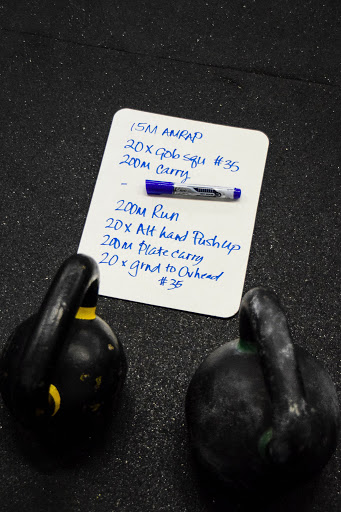 15M AMRAP
20 x Gob squ #35
200m carry
-
200m Run
20 x Alt hand Push up
200m Plate carry
20 x grnd to Ovhead
#35